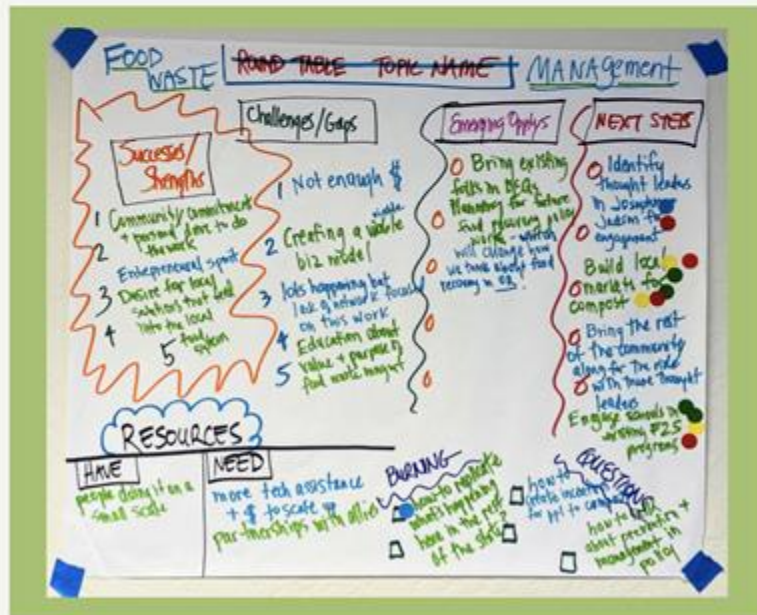 FOOD WASTE
ROUND TABLE TOPIC NAME
MANAGEMENT
Successes/
Strengths
1 Community commitment
+ personal drive to do
the work
2
Entrepreneurial spirit
3 Desire for local
solutions that feed
into the local
food
system
4
5
Challenges/Gaps
1 Not enough $
2 Creating a viable
biz model
3 lots happening but
lack of network focused
on this work
4 Education about
value + purpose of
food waste mngmt
5
Emerging Opptys
Bring existing
folks in
Planning for future
food recovery policy
works - which
will change how
we think about food
recovery in
NEXT STEPS
Identify
thought leaders
in Josephine
Jackson for
engagement
Build local
markets for
compost
Bring the rest
of the community
along for the ride
with these thought
leaders
Engage schools in
existing F2S
programs
RESOURCES
HAVE
people doing it on a
small scale
NEED
more tech assistance
+ $ to scale
partnerships with allies
BURNING
QUESTIONS
how to replicate
what's happening
here in the rest
of the state
how to
create incentives
for ppl to compost
how to
about prevention +
management in
policy